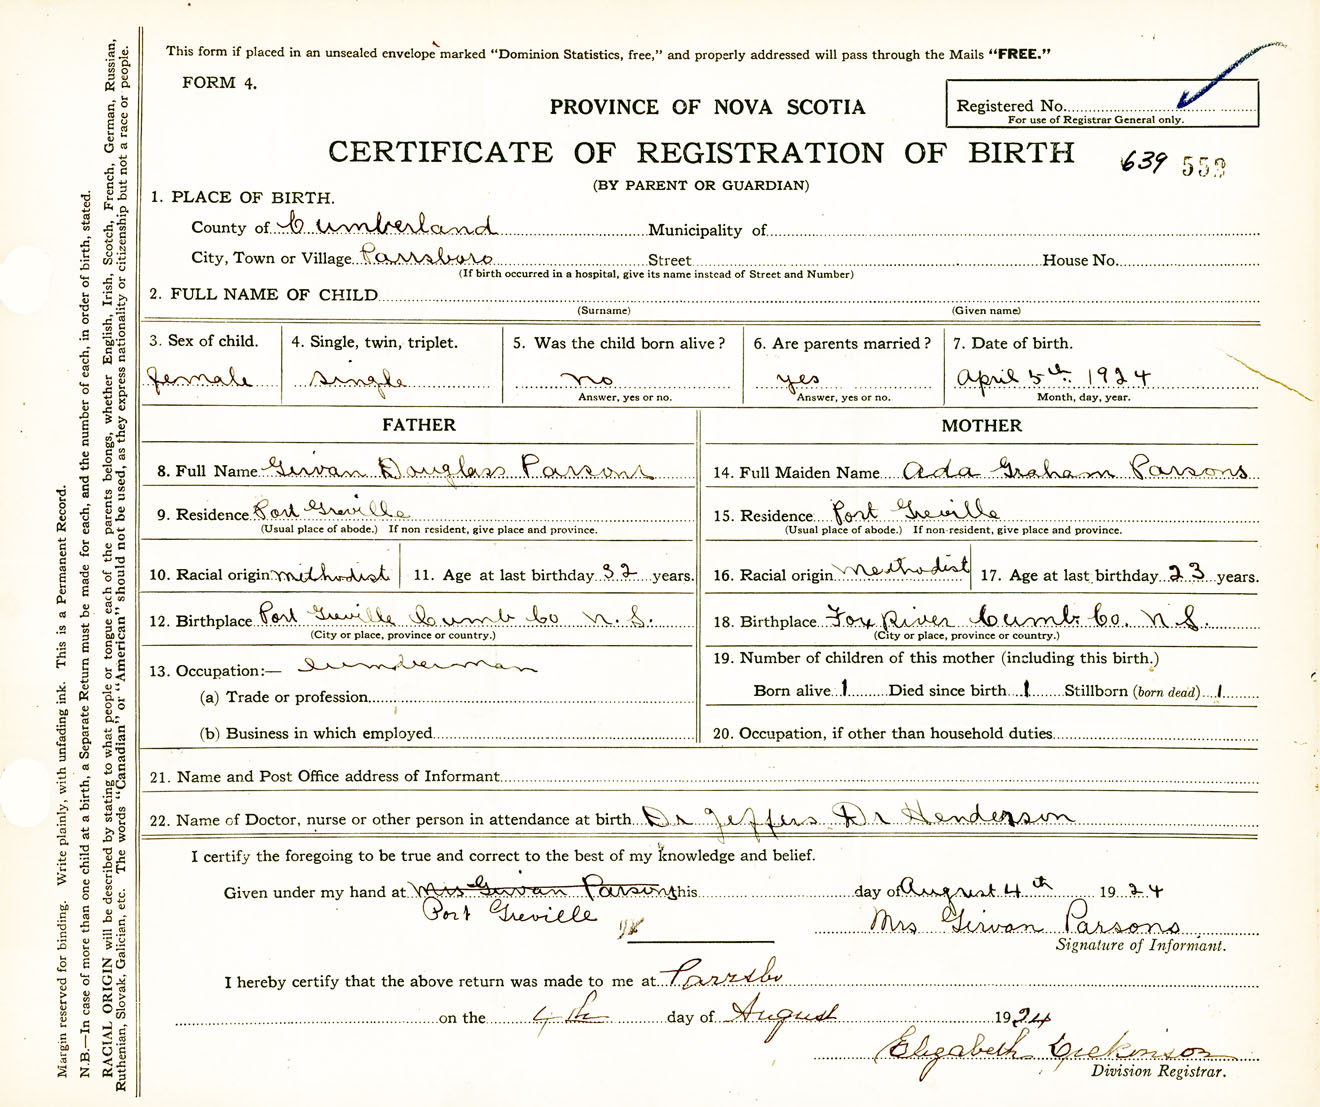 This form if placed in an unsealed envelope marked “Dominion Statistics, free,” and properly addressed will pass through the Mails “FREE.”
FORM 4.
PROVINCE OF NOVA SCOTIA
Registered No.
For use of Registrar General only.
CERTIFICATE OF REGISTRATION OF BIRTH
639 553
(BY PARENT OR GUARDIAN)
1. PLACE OF BIRTH.
County of Cumberland Municipality of
City, Town or Village Parrsboro Street House No.
(If birth occurred in a hospital, give its name instead of Street and Number)
2. FULL NAME OF CHILD
(Surname) (Given name)
3. Sex of child. 4. Single, twin, triplet. 5. Was the child born alive? 6. Are parents married? 7. Date of birth.
female single no yes April 5th 1924
Answer, yes or no. Answer, yes or no. Month, day, year.
FATHER MOTHER
8. Full Name Girvan Douglass Parsons 14. Full Maiden Name Ada Graham Parsons
9. Residence Port Greville 15. Residence Port Greville
(Usual place of abode.) If non resident, give place and province. (Usual place of abode.) If non-resident, give place and province.
10. Racial origin Methodist 11. Age at last birthday 32 years. 16. Racial origin Methodist 17. Age at last birthday 23 years.
12. Birthplace Port Greville Cumb Co N.S. 18. Birthplace Fox River Cumb. Co. N.S.
(City or place, province or country.) (City or place, province or country.)
13. Occupation:— Lumberman 19. Number of children of this mother (including this birth.)
(a) Trade or profession Born alive 1 Died since birth 1 Stillborn (born dead) 1
(b) Business in which employed 20. Occupation, if other than household duties
21. Name and Post Office address of Informant
22. Name of Doctor, nurse or other person in attendance at birth Dr Jeffers Dr Henderson
I certify the foregoing to be true and correct to the best of my knowledge and belief.
Given under my hand at Mrs Girvan Parsons this day of August 4th 1924
Port Greville Mrs Girvan Parsons
Signature of Informant.
I hereby certify that the above return was made to me at Parrsbo
on the 4th day of August 1924
Elizabeth Dickinson
Division Registrar.
Margin reserved for binding. Write plainly, with unfading ink. This is a Permanent Record.
N.B.—In case of more than one child at a birth, a Separate Return must be made for each, and the number of each, in order of birth, stated.
RACIAL ORIGIN will be described by stating to what people or tongue each of the parents belongs, whether English, Irish, Scotch, French, German, Russian,
Ruthenian, Slovak, Galician, etc. The words “Canadian” or “American” should not be used, as they express nationality or citizenship but not a race or people.